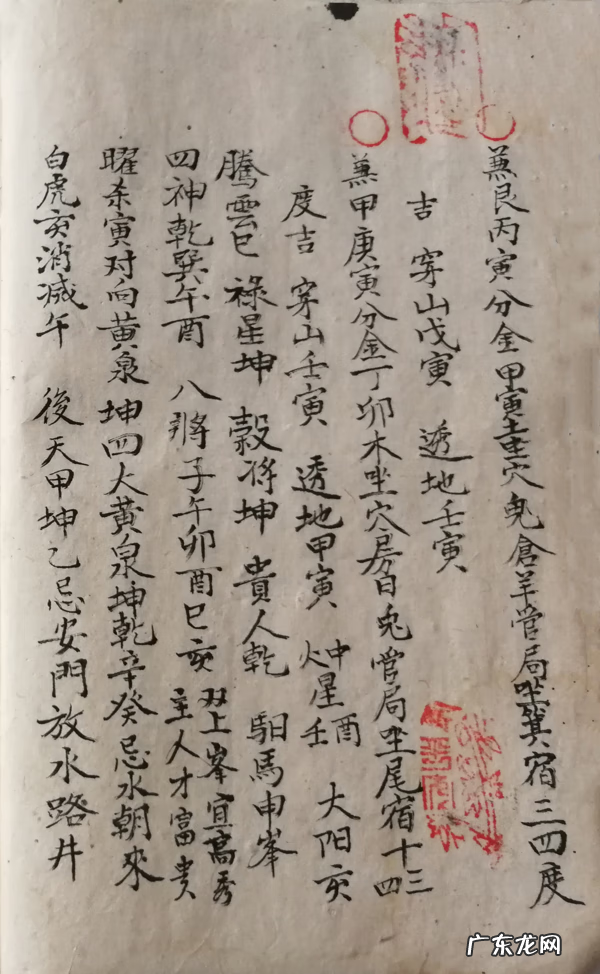 兼艮丙寅分金甲寅土坐穴鬼倉羊管局坐箕宿三四度
吉 穿山戊寅 透地壬寅
兼甲庚寅分金丁卯木坐穴房日兔管局坐尾宿十三四
度吉 穿山壬寅 透地甲寅 星酉壬 大阳亥
騰雲巳 祿星坤 穀将坤 貴人乾 馹馬申峯
四神乾巽午酉 八將子午卯酉巳亥 双上峯宜高秀主人才富贵
曜杀寅对向黄泉 坤四大黄泉坤乾辛癸忌水朝來
白虎亥消减午 後天甲坤乙忌安門放水路井
广东龙网